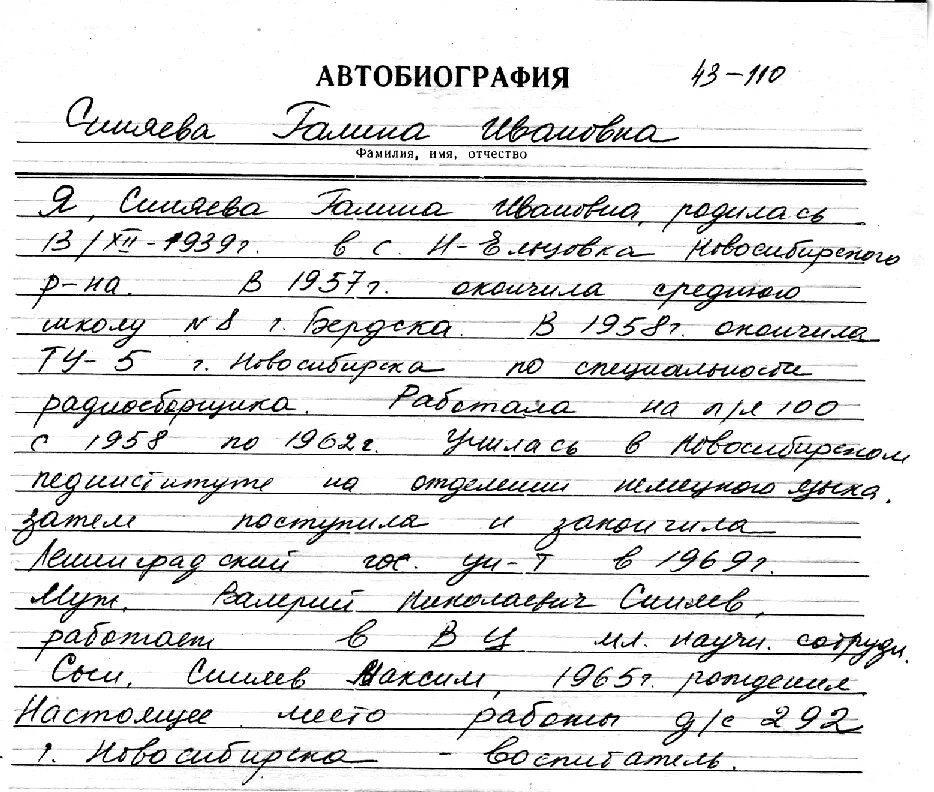 АВТОБИОГРАФИЯ 43-110
Синяева Галина Ивановна
Фамилия, имя, отчество
Я, Синяева Галина Ивановна, родилась
13/XII-1939г. в с. Н-Ельцовка Новосибирского
р-на. В 1957г. окончила среднюю
школу N8 г. Бердска. В 1958г. окончила
ТУ-5 г. Новосибирска по специальности
радиосборщика. Работала на п/я 100
с 1958 по 1962г. Училась в Новосибирском
пединституте на отделении немецкого языка.
затем поступила и закончила
Ленинградский гос. ун-т в 1969г.
Муж, Валерий Николаевич Синяев,
работает в ВЦ мл. научн. сотрудн.
Сын, Синяев Максим, 1965г. рождения
Настоящее место работы д/с 292
г. Новосибирска - воспитатель.